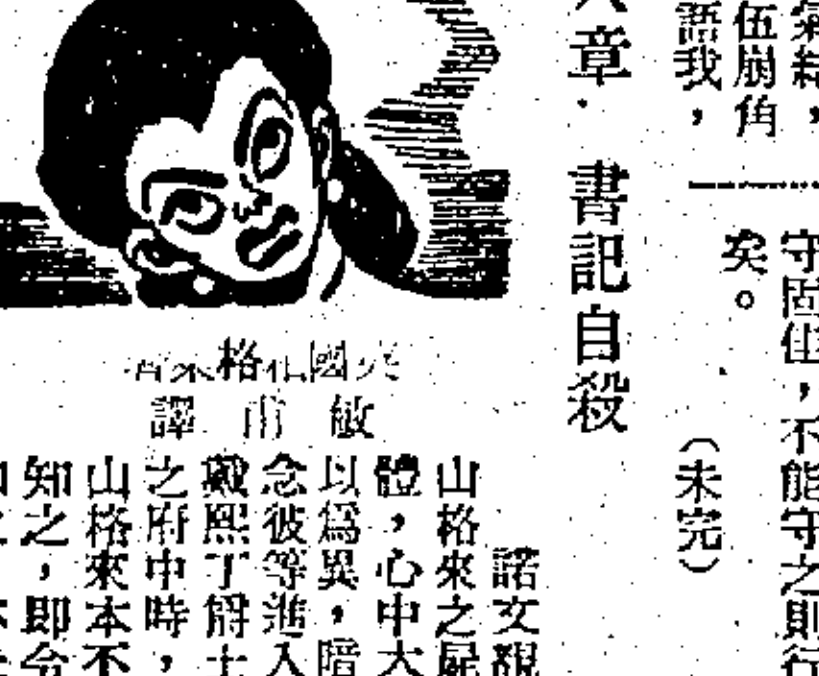 氣結，
伍崩角
語我，
守固佳，不能守之則行
矣。
（未完）
章．書記自殺
英國祖格來著
敏甫譯
諾文覩
山格來之屍
體，心中大
以爲異，暗
念彼等進入
戴熙丁爵士
之府中時，
山格來本不
知之，即令